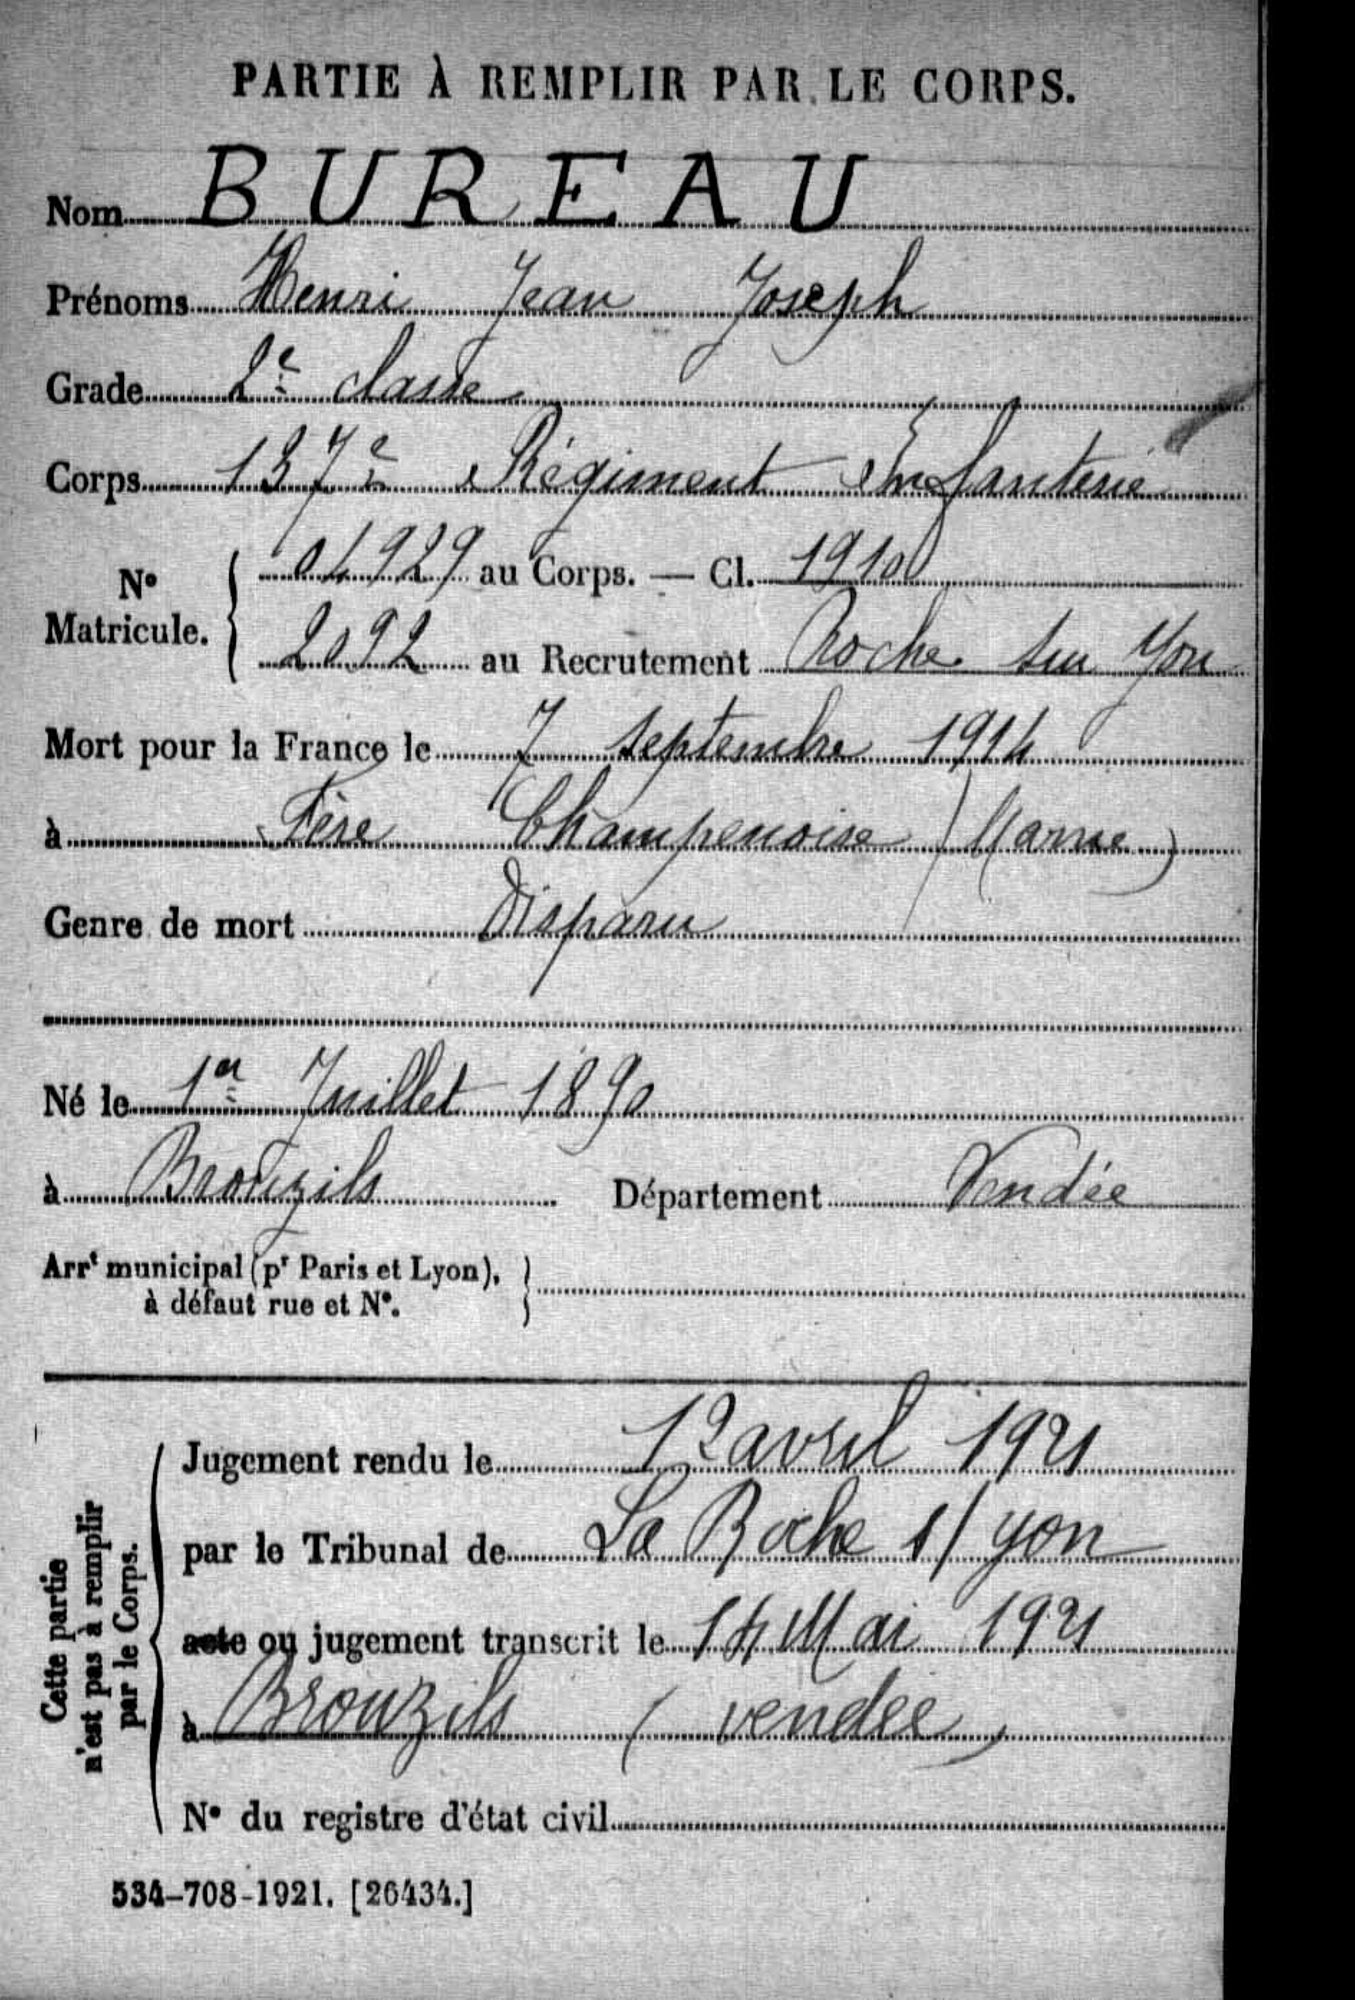 PARTIE À REMPLIR PAR LE CORPS.
Nom BUREAU
Prénoms Henri Jean Joseph
Grade 2e classe
Corps 137e Régiment Infanterie
No Matricule. { 04929 au Corps. — Cl. 1910
2092 au Recrutement Roche sur Yon
Mort pour la France le 7 septembre 1914
à Fère Champenoise (Marne)
Genre de mort Disparu
Né le 1er Juillet 1890
à Brouzils Département Vendée
Arrt municipal (pr Paris et Lyon), }
à défaut rue et No.
Cette partie
n'est pas à remplir
par le Corps.
Jugement rendu le 12 avril 1921
par le Tribunal de La Roche s/ yon
acte ou jugement transcrit le 14 Mai 1921
à Brouzils (vendée)
No du registre d'état civil
534-708-1921. [26434.]